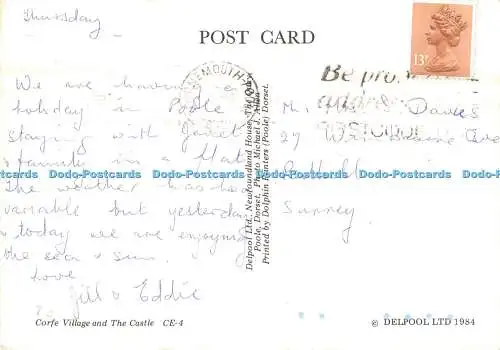 Thursday
POST CARD
13P
NEMOUTH-
Be pro
We are having a
holiday in Poole
staying with Janet
& family in a flat.
The weather has been
variable but yesterday
& today we are enjoying
the sea & sun.
Love
Jill & Eddie
M. Davies
27
Surrey
Delpool Ltd., Newfoundland House, The Quay,
Poole, Dorset. Photo Michael J. Allen
Printed by Dolphin Printers (Poole) Dorset.
Dodo-Postcards.com Dodo-Postcards.com Dodo-Postcards.com Dodo-Postcards.com
Corfe Village and The Castle CE-4
© DELPOOL LTD 1984